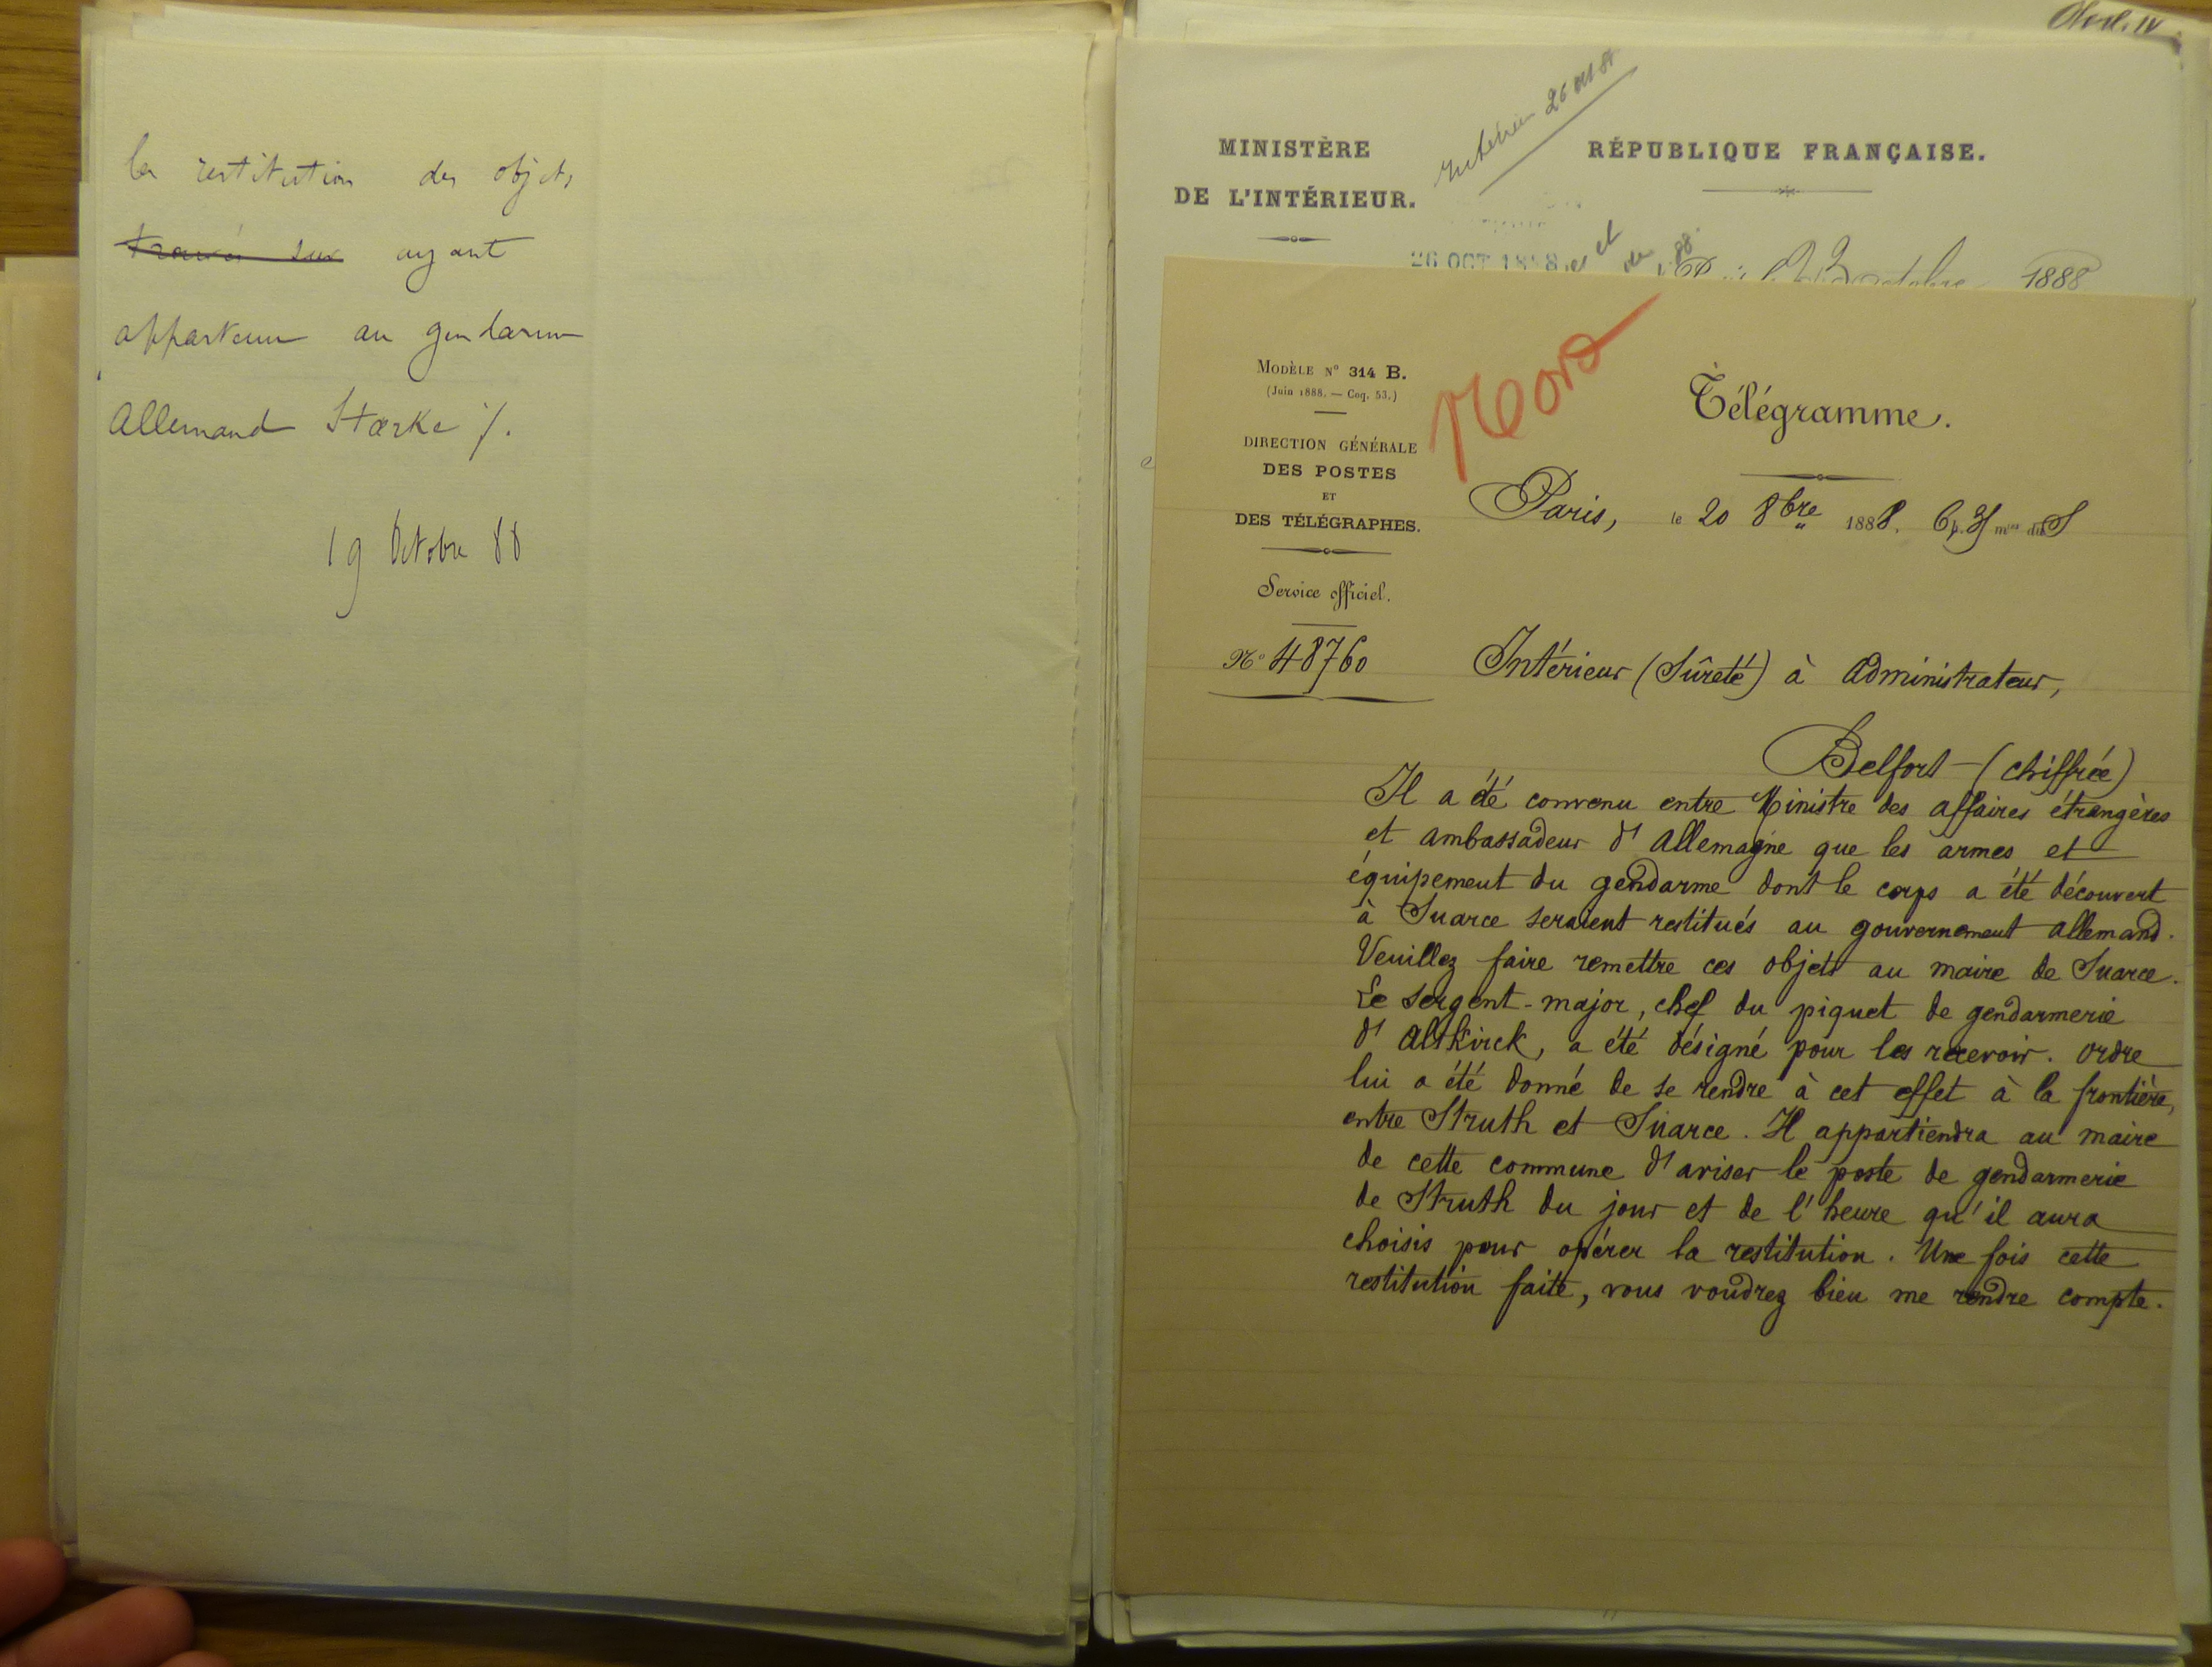 la restitution des objets
trouvés sur ayant
appartenu au gendarme
Allemand Stærke /.
19 Octobre 88
MINISTÈRE
DE L'INTÉRIEUR.
RÉPUBLIQUE FRANÇAISE.
26 OCT 1888
octobre 1888
MODÈLE N° 314 B.
(Juin 1888. — Coq. 53.)
DIRECTION GÉNÉRALE
DES POSTES
ET
DES TÉLÉGRAPHES.
Service officiel.
N° 48760
Télégramme.
Paris, le 20 8bre 1888.
Intérieur (Sûreté) à Administrateur,
Belfort (chiffrée)
Il a été convenu entre Ministre des affaires étrangères
et ambassadeur d'Allemagne que les armes et
équipement du gendarme dont le corps a été découvert
à Suarce seraient restitués au gouvernement allemand.
Veuillez faire remettre ces objets au maire de Suarce.
Le sergent-major, chef du piquet de gendarmerie
d'Altkirck, a été désigné pour les recevoir. Ordre
lui a été donné de se rendre à cet effet à la frontière,
entre Struth et Suarce. Il appartiendra au maire
de cette commune d'aviser le poste de gendarmerie
de Struth du jour et de l'heure qu'il aura
choisis pour opérer la restitution. Une fois cette
restitution faite, vous voudrez bien me rendre compte.